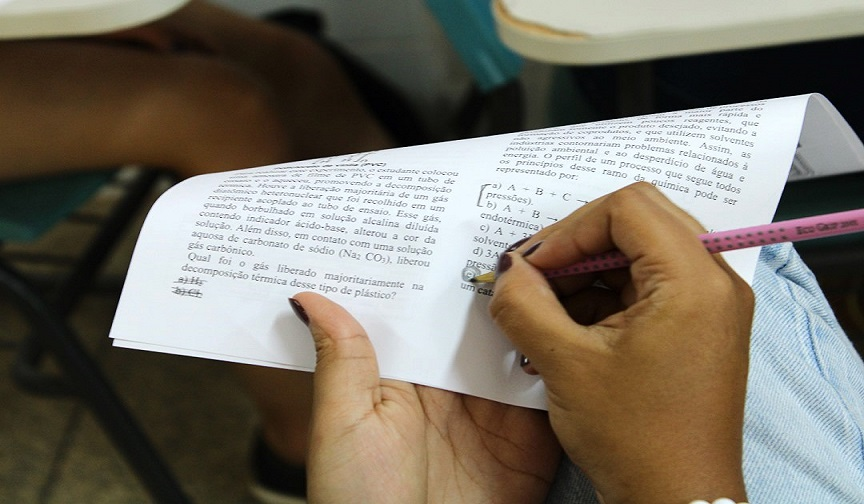 experimento, o estudante colocou
filme de PVC em um tubo de
e o aqueceu, promovendo a decomposição
térmica. Houve a liberação majoritária de um gás
diatômico heteronuclear que foi recolhido em um
recipiente acoplado ao tubo de ensaio. Esse gás,
quando borbulhado em solução alcalina diluída
contendo indicador ácido-base, alterou a cor da
solução. Além disso, em contato com uma solução
aquosa de carbonato de sódio (Na2 CO3), liberou
gás carbônico.
Qual foi o gás liberado majoritariamente na
decomposição térmica desse tipo de plástico?
a) H2
b) Cl2
processos
maior parte do
forma mais rápida e
poucos reagentes, que
somente o produto desejado, evitando a
formação de coprodutos, e que utilizem solventes
não agressivos ao meio ambiente. Assim, as
indústrias contornariam problemas relacionados à
poluição ambiental e ao desperdício de água e
energia. O perfil de um processo que segue todos
os princípios desse ramo da química pode ser
representado por:
a) A + B + C →
pressões).
b) A + B →
endotérmica)
c) A + 3
solvent
d) 3A
press
um cat
ECO GRIP